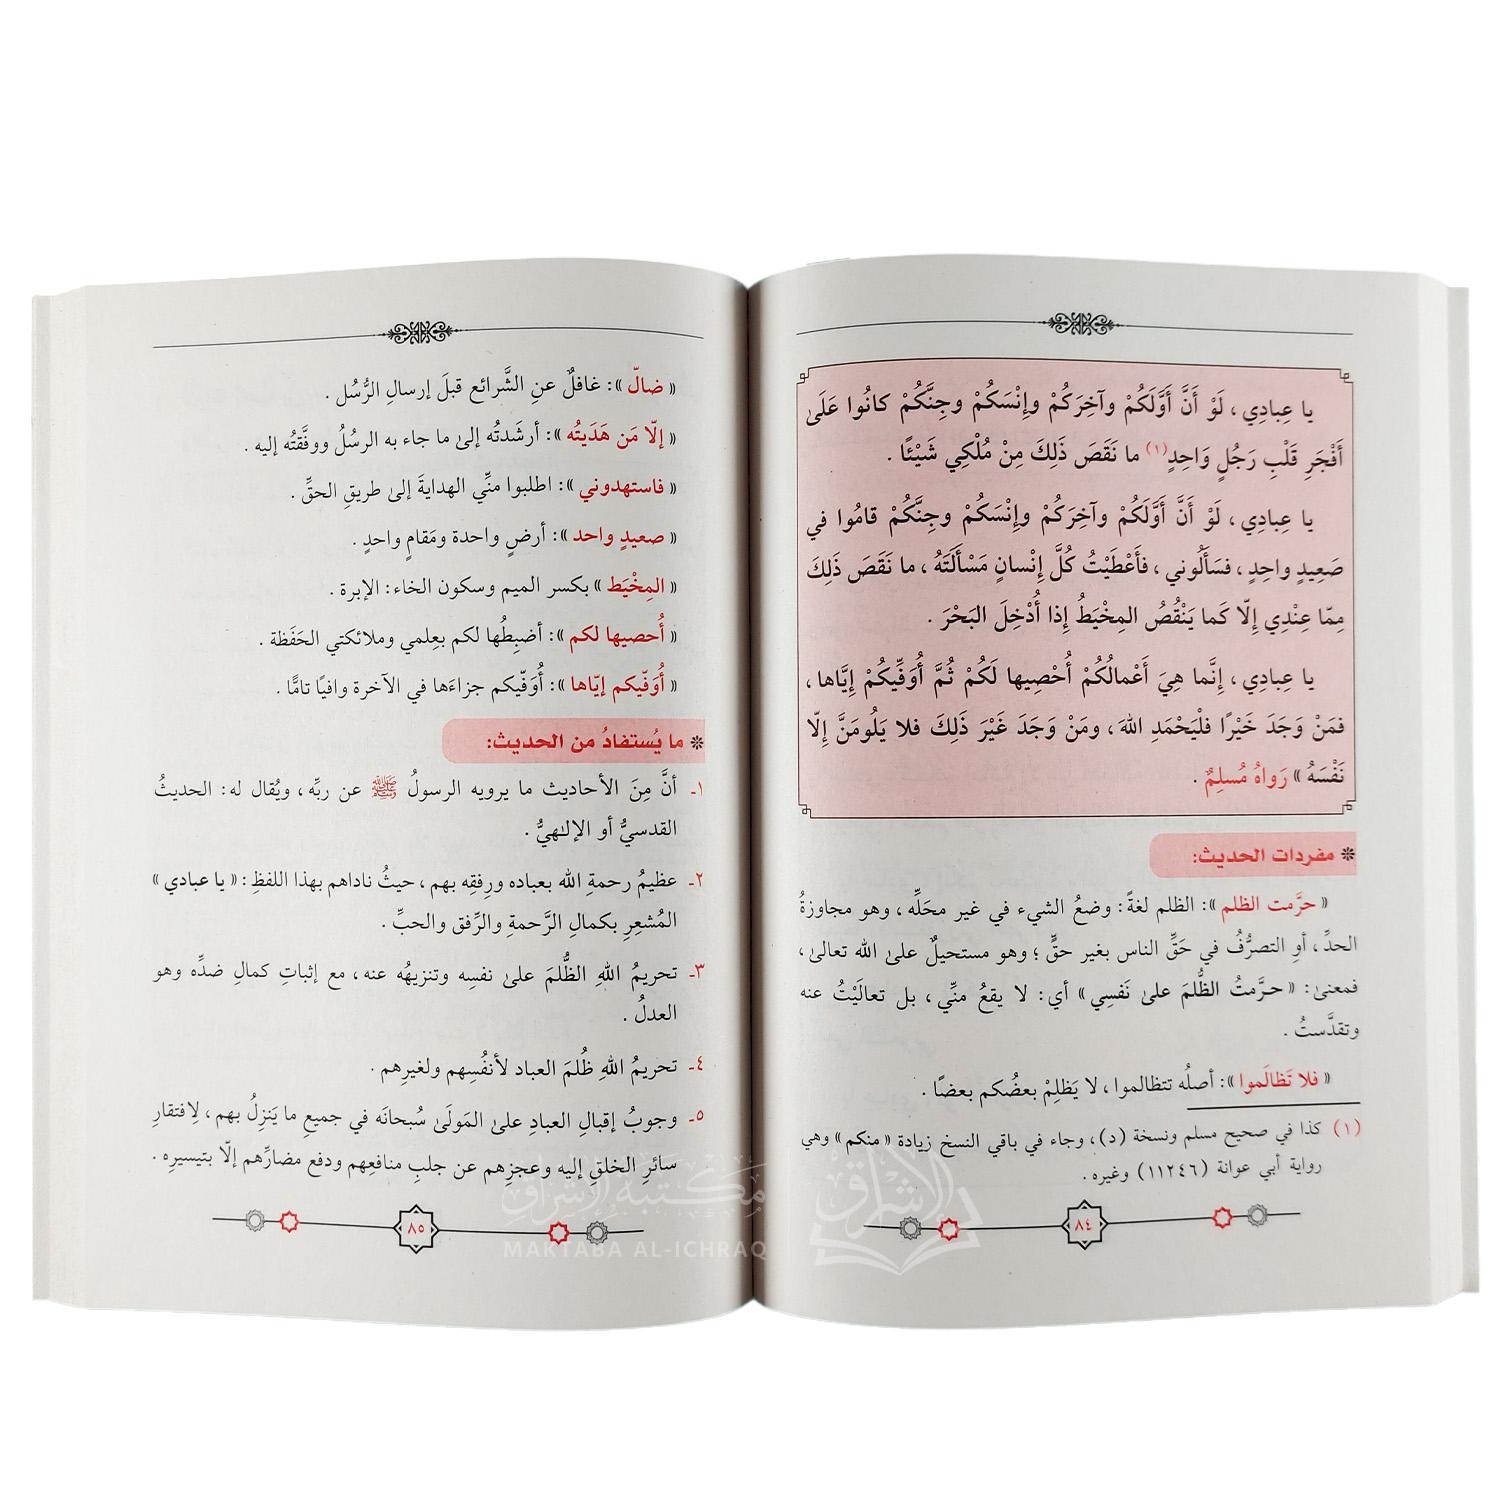 يا عِبادِي ، لَوْ أَنَّ أَوَّلَكُمْ وآخِرَكُمْ وإِنْسَكُمْ وجِنَّكُمْ كانُوا عَلَىٰ
أَفْجَرِ قَلْبِ رَجُلٍ وَاحِدٍ(١) ما نَقَصَ ذَلِكَ مِنْ مُلْكِي شَيْئًا .
يا عِبادِي ، لَوْ أَنَّ أَوَّلَكُمْ وآخِرَكُمْ وإِنْسَكُمْ وجِنَّكُمْ قامُوا في
صَعِيدٍ واحِدٍ ، فسَأَلُوني ، فأَعْطَيْتُ كُلَّ إِنْسانٍ مَسْأَلَتَهُ ، ما نَقَصَ ذَلِكَ
مِمّا عِنْدِي إلّا كَما يَنْقُصُ المِخْيَطُ إذا أُدْخِلَ البَحْرَ .
يا عِبادِي ، إنَّما هِيَ أَعْمالُكُمْ أُحْصِيها لَكُمْ ثُمَّ أُوَفِّيكُمْ إيّاها ،
فمَنْ وَجَدَ خَيْرًا فلْيَحْمَدِ اللهَ ، ومَنْ وَجَدَ غَيْرَ ذَلِكَ فلا يَلُومَنَّ إلّا
نَفْسَهُ » رَواهُ مُسلِمٌ .
❊ مفردات الحديث:
« حرَّمت الظلم »: الظلم لغةً: وضعُ الشيء في غير محَلِّه ، وهو مجاوزةُ
الحدِّ ، أوِ التصرُّفُ في حَقِّ الناس بغير حقٍّ ؛ وهو مستحيلٌ علىٰ الله تعالىٰ ،
فمعنىٰ: « حرَّمتُ الظُّلمَ علىٰ نَفسِي » أي: لا يقعُ منِّي ، بل تعالَيْتُ عنه
وتقدَّستُ .
« فلا تَظالَموا »: أصلُه تتظالموا ، لا يَظلِمْ بعضُكم بعضًا .
(١) كذا في صحيح مسلم ونسخة (د) ، وجاء في باقي النسخ زيادة « منكم » وهي
رواية أبي عوانة (١١٢٤٦) وغيره .
٨٤
« ضالّ »: غافلٌ عنِ الشَّرائع قبلَ إرسالِ الرُّسُل .
« إلّا مَن هَدَيتُه »: أرشَدتُه إلىٰ ما جاء به الرسُلُ ووفَّقتُه إليه .
« فاستهدوني »: اطلبوا منِّي الهدايةَ إلىٰ طريقِ الحقِّ .
« صعيدٍ واحد »: أرضٍ واحدة ومَقامٍ واحدٍ .
« المِخْيَط » بكسر الميم وسكون الخاء: الإبرة .
« أُحصيها لكم »: أضبِطُها لكم بعِلمي وملائكتي الحَفَظة .
« أُوَفّيكم إيّاها »: أُوَفّيكم جزاءَها في الآخرة وافيًا تامًّا .
❊ ما يُستفادُ من الحديث:
١ـ أنَّ مِنَ الأحاديث ما يرويه الرسولُ ﷺ عن ربِّه ، ويُقال له: الحديثُ
القدسيُّ أو الإلـٰهيُّ .
٢ـ عظيمُ رحمةِ الله بعباده ورِفقِه بهم ، حيثُ ناداهم بهذا اللفظِ: « يا عبادي »
المُشعِرِ بكمالِ الرَّحمةِ والرِّفق والحبِّ .
٣ـ تحريمُ اللهِ الظُّلمَ علىٰ نفسِه وتنزيهُه عنه ، مع إثباتِ كمالِ ضدِّه وهو
العدلُ .
٤ـ تحريمُ اللهِ ظُلمَ العباد لأنفُسِهم ولغيرِهم .
٥ـ وجوبُ إقبالِ العبادِ علىٰ المَولَىٰ سُبحانَه في جميعِ ما يَنزِلُ بهم ، لِافتقارِ
سائرِ الخلقِ إليه وعجزِهم عن جلبِ منافعِهم ودفع مضارِّهم إلّا بتيسيرِه .
٨٥
مكتبة الإشراق
MAKTABA AL-ICHRAQ
الإشراق